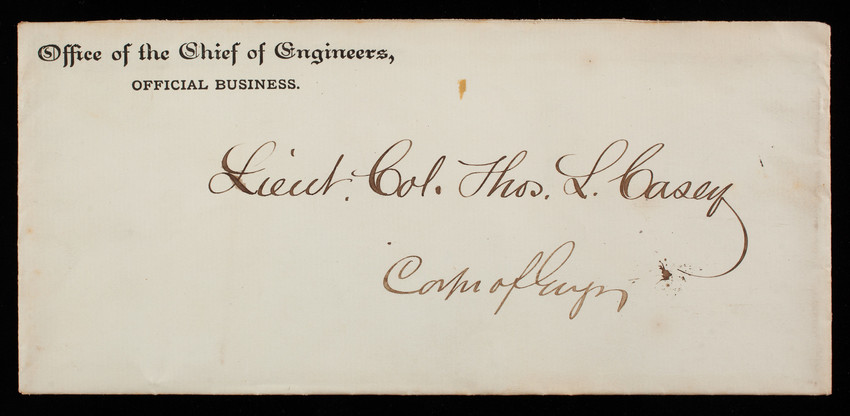 Office of the Chief of Engineers,
OFFICIAL BUSINESS.
Lieut. Col. Thos. L. Casey
Corps of Engrs